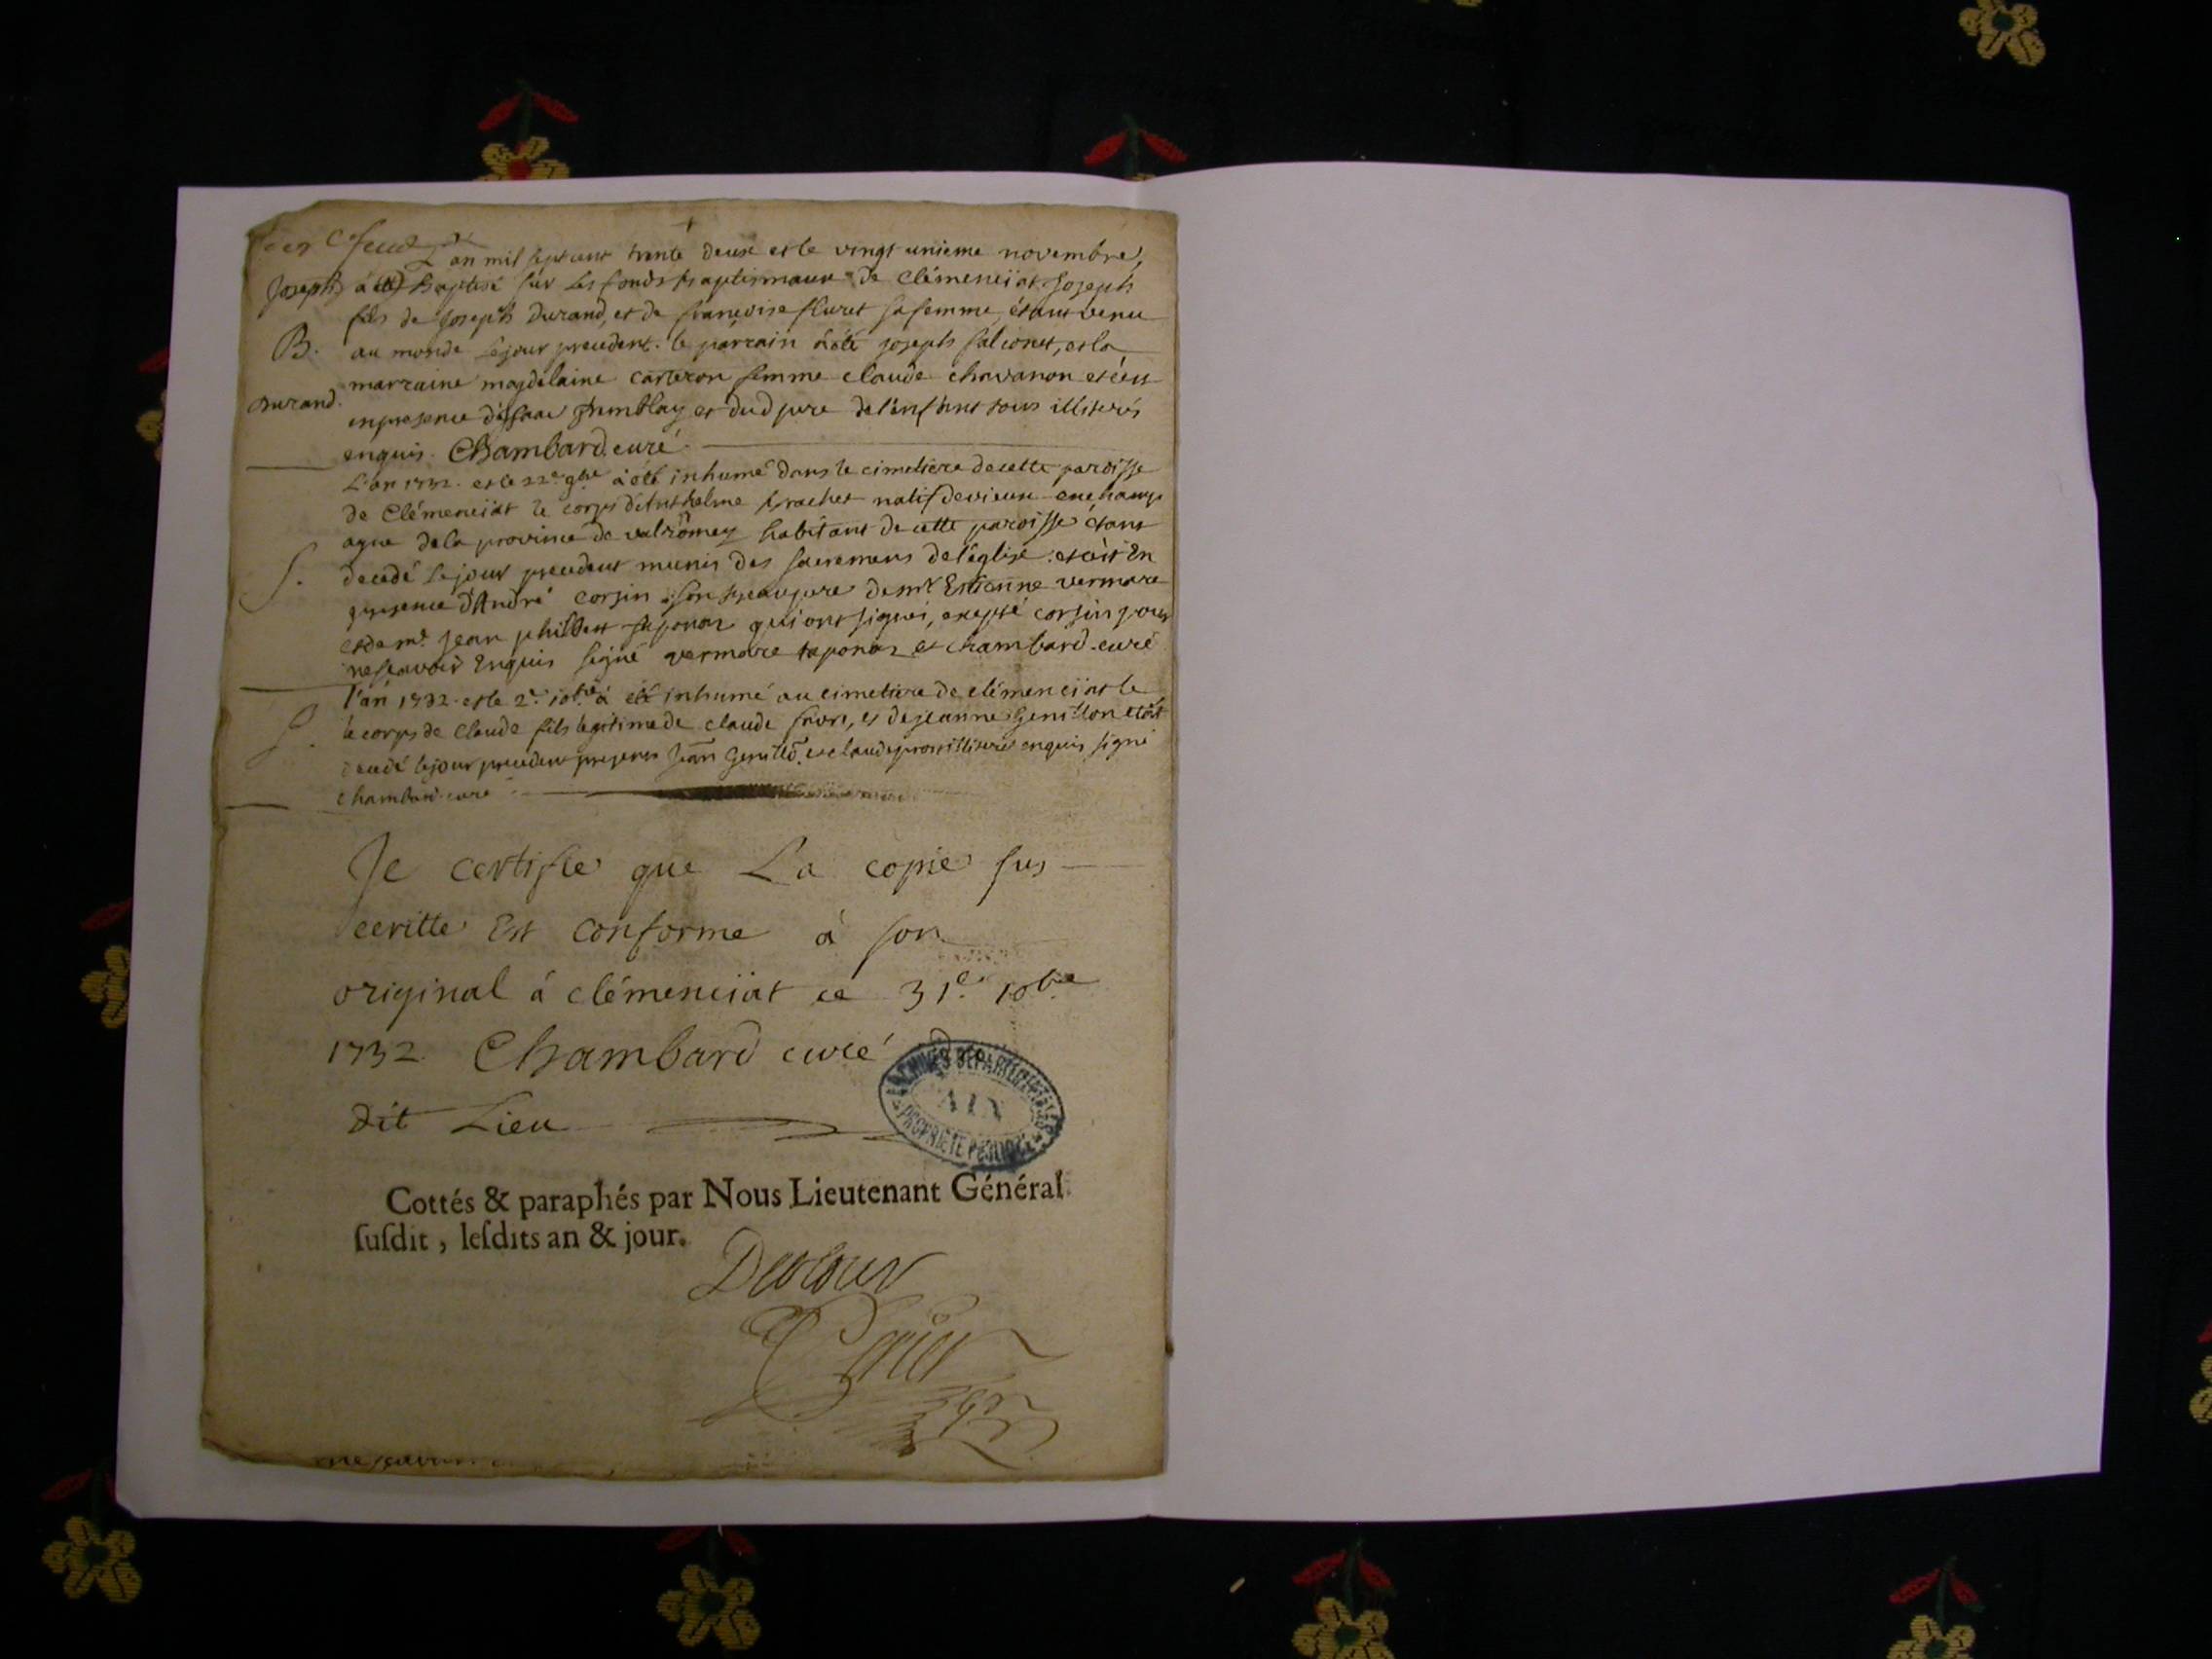 L'an mil sept cent trente deux et le vingt unieme novembre,
Joseph à été baptisé sur les fonds baptismaux de Clémenciat Joseph
fils de Joseph Durand, et de françoise fluret sa femme, étant venu
B. au monde le jour precedent. le parrain à été joseph falconet, et la
Durand. marraine magdelaine carteron femme claude chavanon et c'est
en presence d'isaac tremblay et dud pere de l'enfant tous illiterés
enquis. Chambard curé
L'an 1732. et le 22e 9bre à été inhumé dans le cimetiere de cette paroisse
de Clémenciat le corps d'Anthelme brachet natif de vieux en champ
agne de la province de valromey habitant de cette paroisse étant
S. decedé le jour precedent munis des sacremens de l'église. et c'est En
presence d'André corsin son beaupere de mr Estienne vermare
et de mr. jean philibert taponas qui ont signéi, excepté corsin pour
ne scavoir Enquis signé vermare taponas et chambard curé
l'an 1732. et le 2e. 10bre à été inhumé au cimetiere de clémenciat le
S. le corps de claude fils legitime de claude favre, et de jeanne Genillon etoit
decedé le jour precedent presens jean Genillo. et claude illiterés enquis signé
chambard curé
Je certifie que La copie sus
ecritte Est conforme à son
original à clémenciat ce 31e. 10bre
1732. Chambard curé
dit Lieu
ARCHIVES DÉPARTEMENTALES
AIN
PROPRIÉTÉ PUBLIQUE
Cottés & paraphés par Nous Lieutenant Général
ſuſdit, leſdits an & jour.
ne scavoir